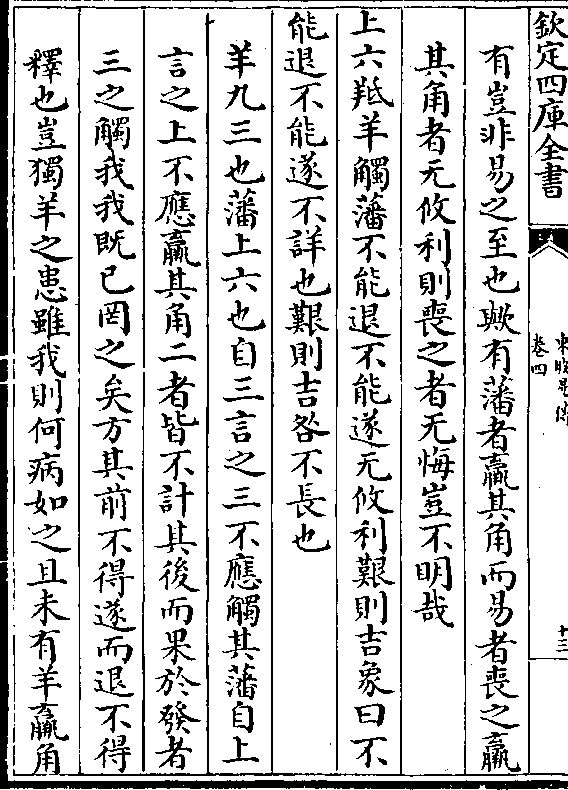 欽定四庫全書
東坡易傳
卷四
十三
有豈非易之至也歟有藩者羸其角而易者喪之羸
其角者无攸利則喪之者无悔豈不明哉
上六羝羊觸藩不能退不能遂无攸利艱則吉象曰不
能退不能遂不詳也艱則吉咎不長也
羊九三也藩上六也自三言之三不應觸其藩自上
言之上不應羸其角二者皆不計其後而果於發者
三之觸我我既已罔之矣方其前不得遂而退不得
釋也豈獨羊之患雖我則何病如之且未有羊羸角